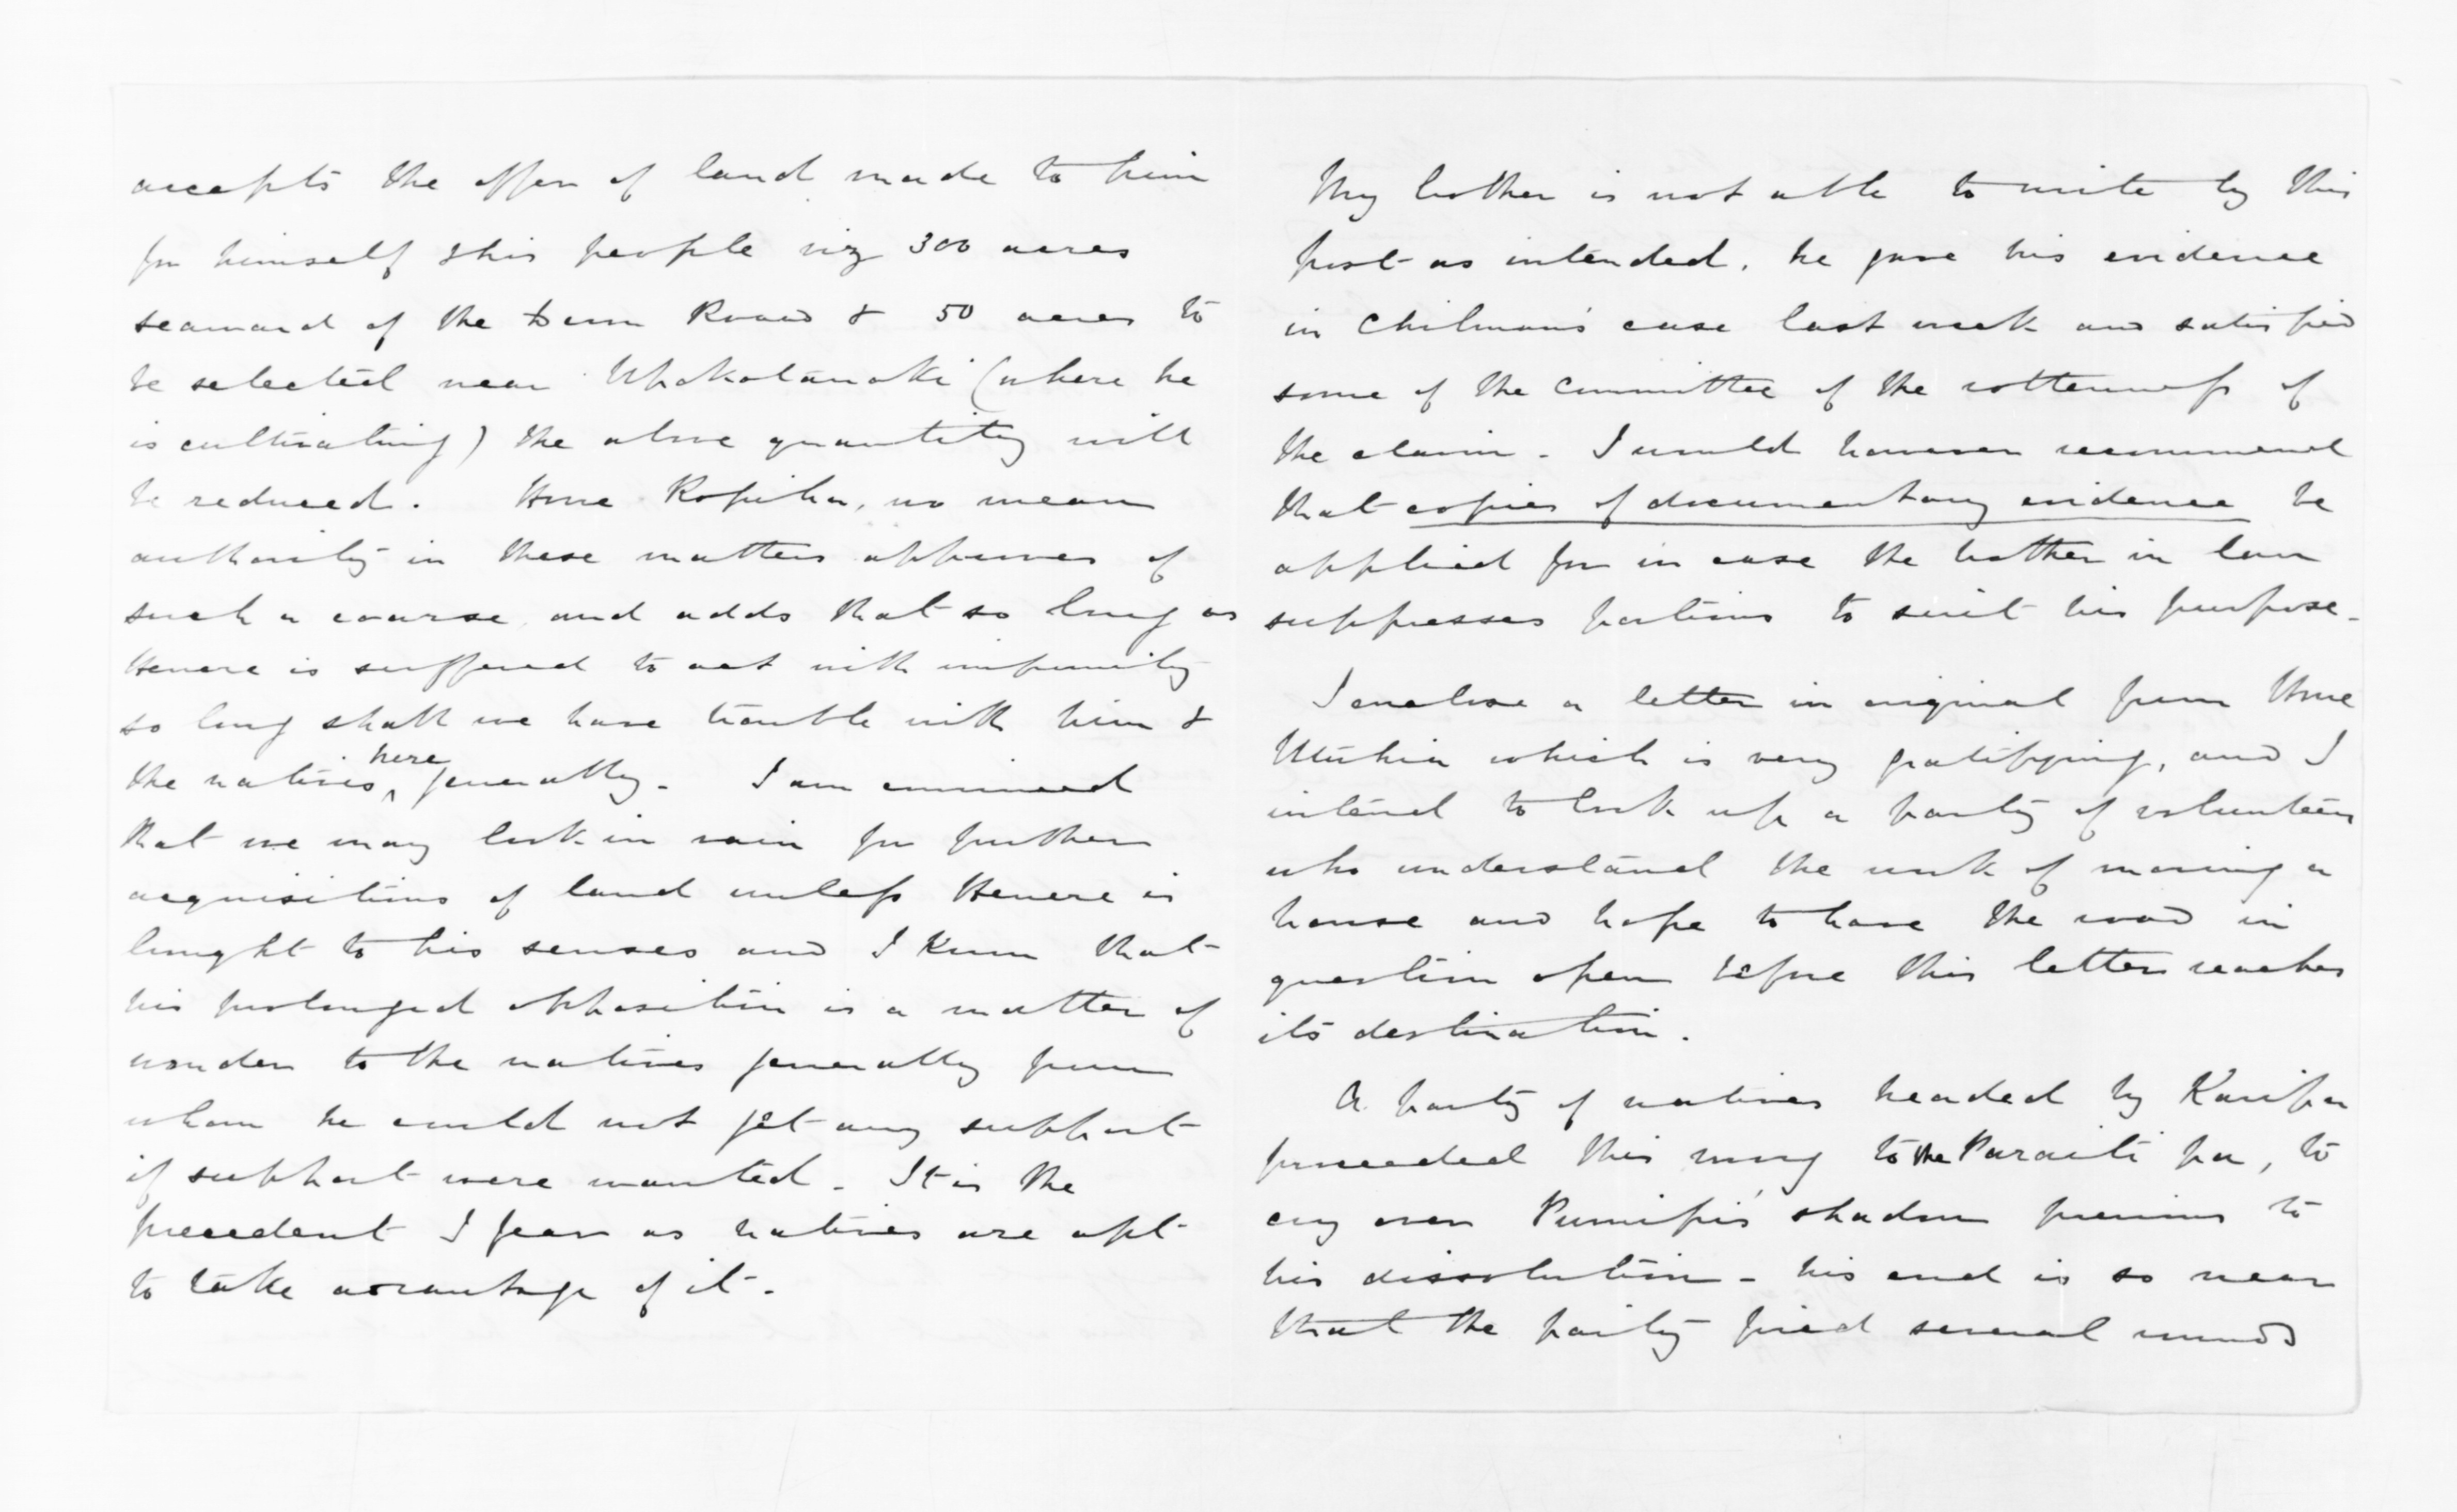 accepts the offer of land made to him
for himself & his people viz 300 acres
seaward of the Devon Road & 50 acres to
be selected near Whakatanoki (where he
is cultivating) the above quantity will
be reduced. Hone Ropiha, no mean
authority in these matters approves of
such a coarse and adds that so long as
Henere is suffered to act with impunity
so long shall we have trouble with him &
the natives here generally. I am convinced
that we may look in vain for further
acquisitions of land unless Henere is
brought to his senses and I know that
his prolonged opposition is a matter of
wonder to the natives generally from
whom he could not get any support
if support were wanted. It is the
precedent I fear as natives are apt
to take advantage of it.
My brother is not able to write by this
post as intended. he gave his evidence
in Chilman's case last week and satisfied
some of the Committee of the rottenness of
the claim. I would however recommend
that copies of documentary evidence be
applied for in case the brother in law
suppresses portions to suit his purpose.
I enclose a letter in original from Hone
which is very gratifying, and I
intend to look up a party of volunteers
who understand the work of moving a
house and hope to have the road in
question open before this letter reaches
its destination.
A party of natives headed by Karipa
proceeded this morng to the Paraiti pa, to
cry over Pumipi's shadow previous to
his dissolution - his end is so near
that the party fired several rounds